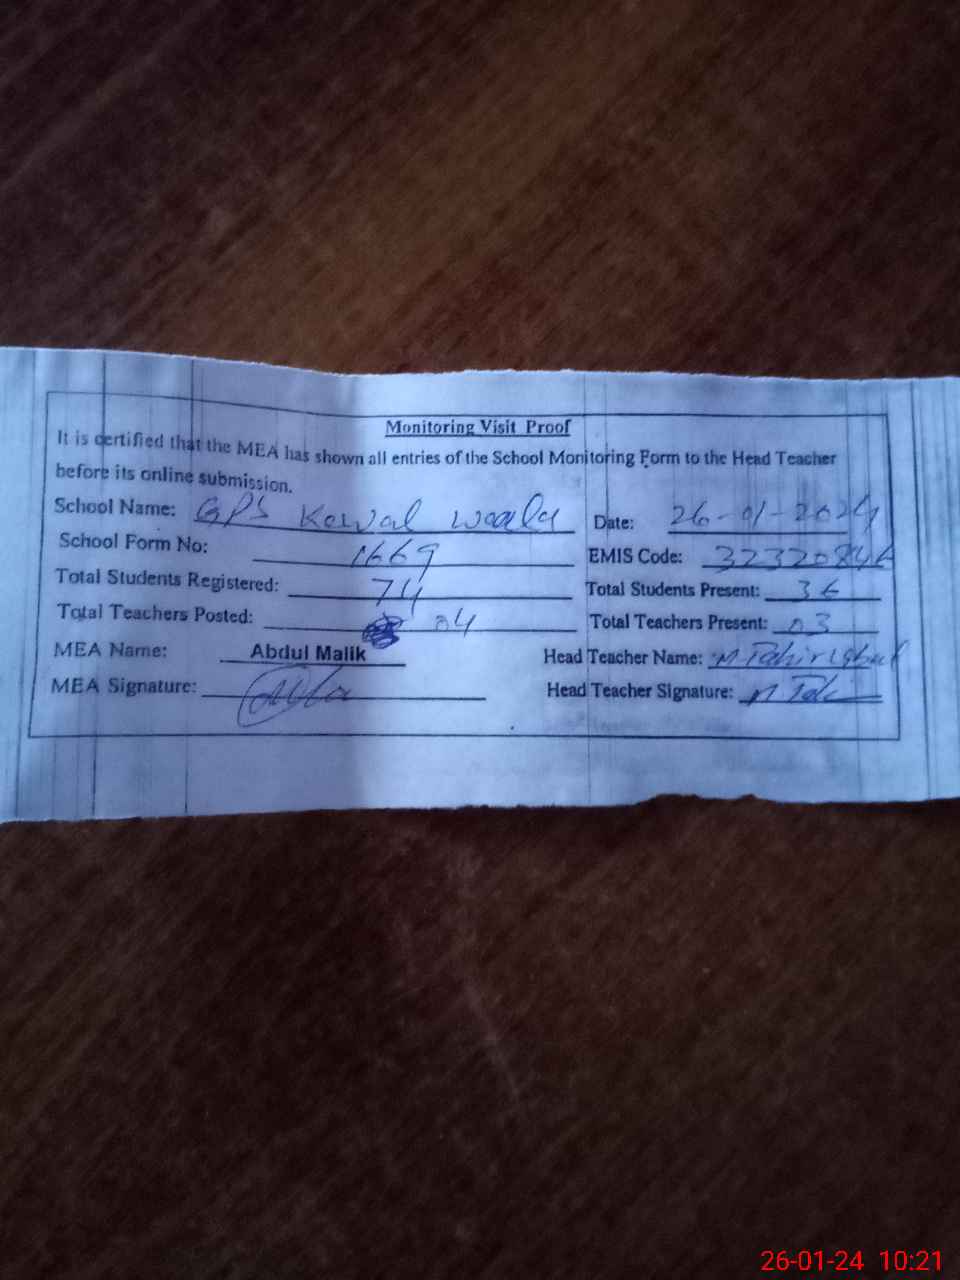 Monitoring Visit Proof
It is certified that the MEA has shown all entries of the School Monitoring Form to the Head Teacher
before its online submission.
School Name: GPS Kowal Waala Date: 26-01-2024
School Form No: 1669 EMIS Code: 32320846
Total Students Registered: 74 Total Students Present: 36
Total Teachers Posted: 04 Total Teachers Present: 03
MEA Name: Abdul Malik Head Teacher Name: M Tahir Iqbal
MEA Signature: Head Teacher Signature: M Tahir
26-01-24 10:21